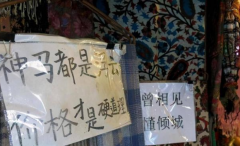 神马都是浮云
价格才是硬道理
曾相见
倾城